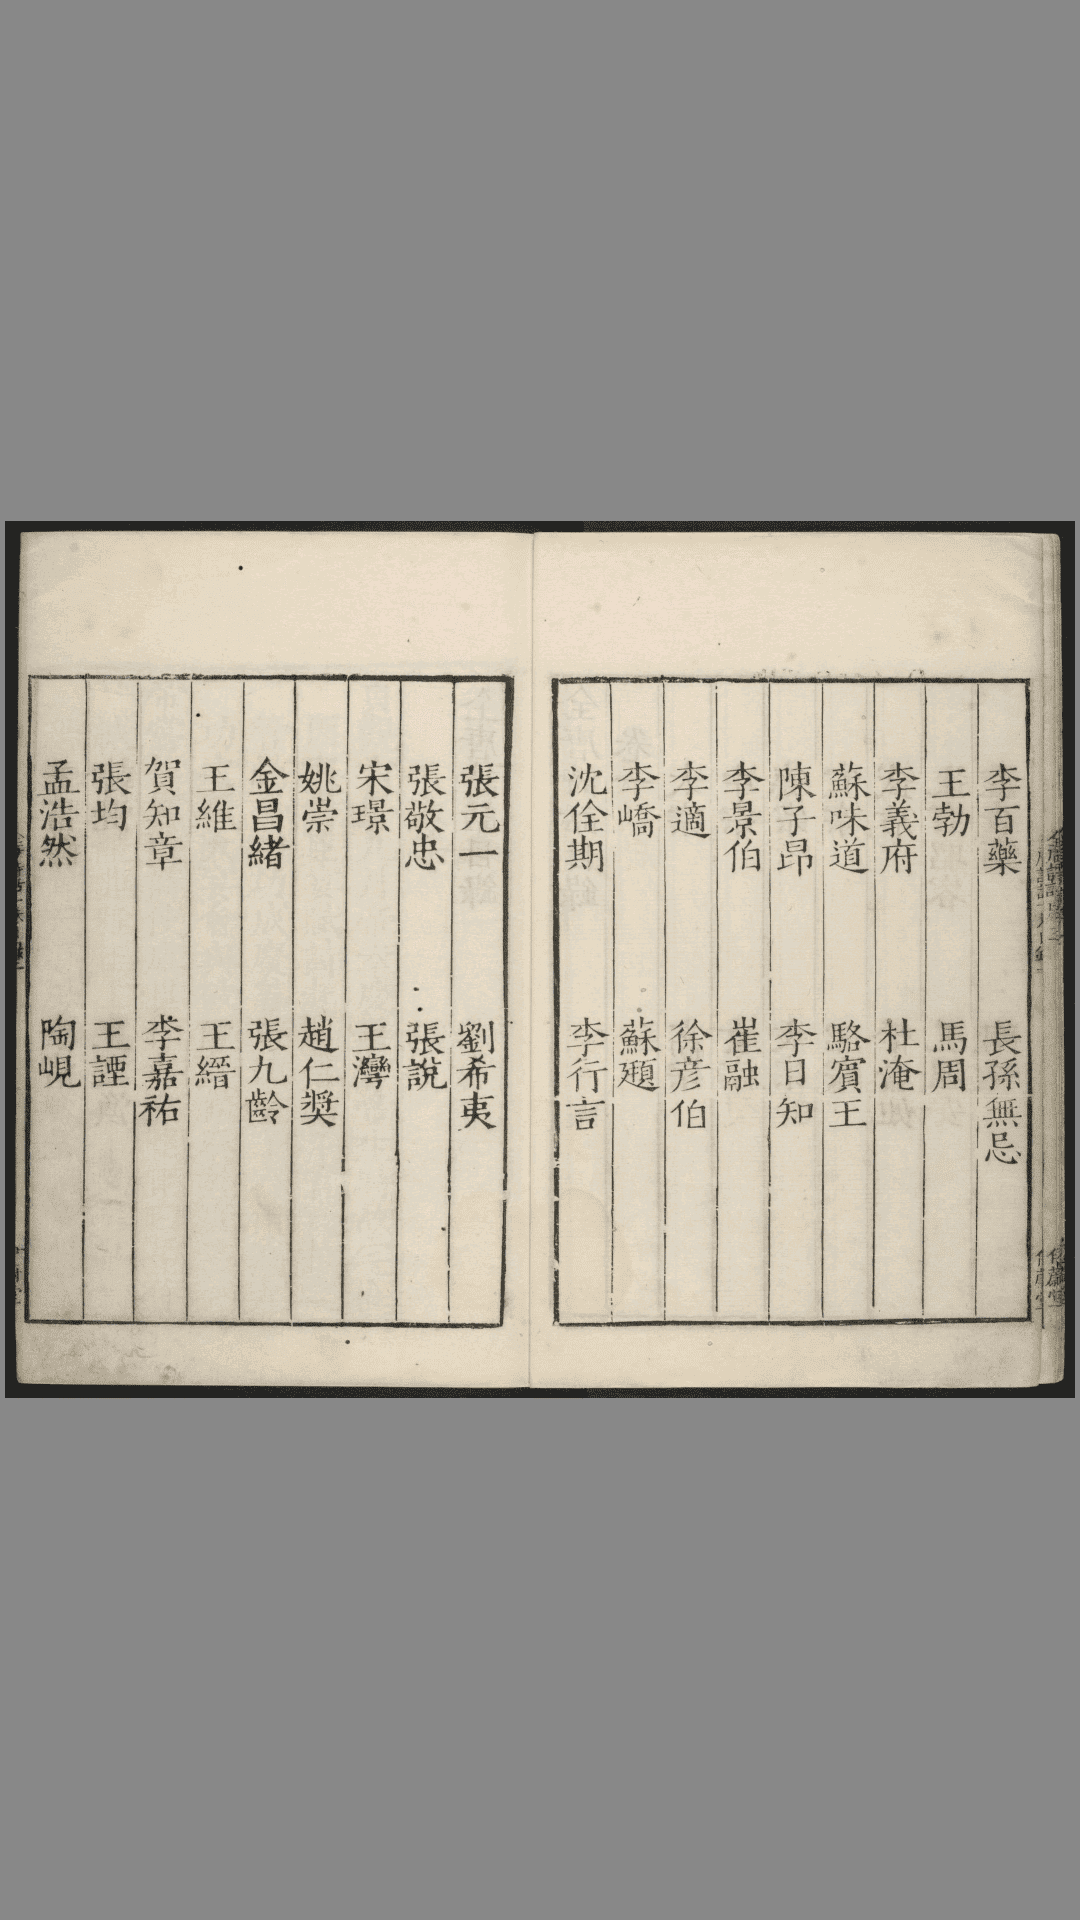 李百藥 長孫無忌
王勃 馬周
李義府 杜淹
蘇味道 駱賓王
陳子昂 李日知
李景伯 崔融
李適 徐彦伯
李嶠 蘇頲
沈佺期 李行言
張元一 劉希夷
張敬忠 張說
宋璟 王灣
姚崇 趙仁奨
金昌緒 張九齡
王維 王縉
賀知章 李嘉祐
張均 王諲
孟浩然 陶峴